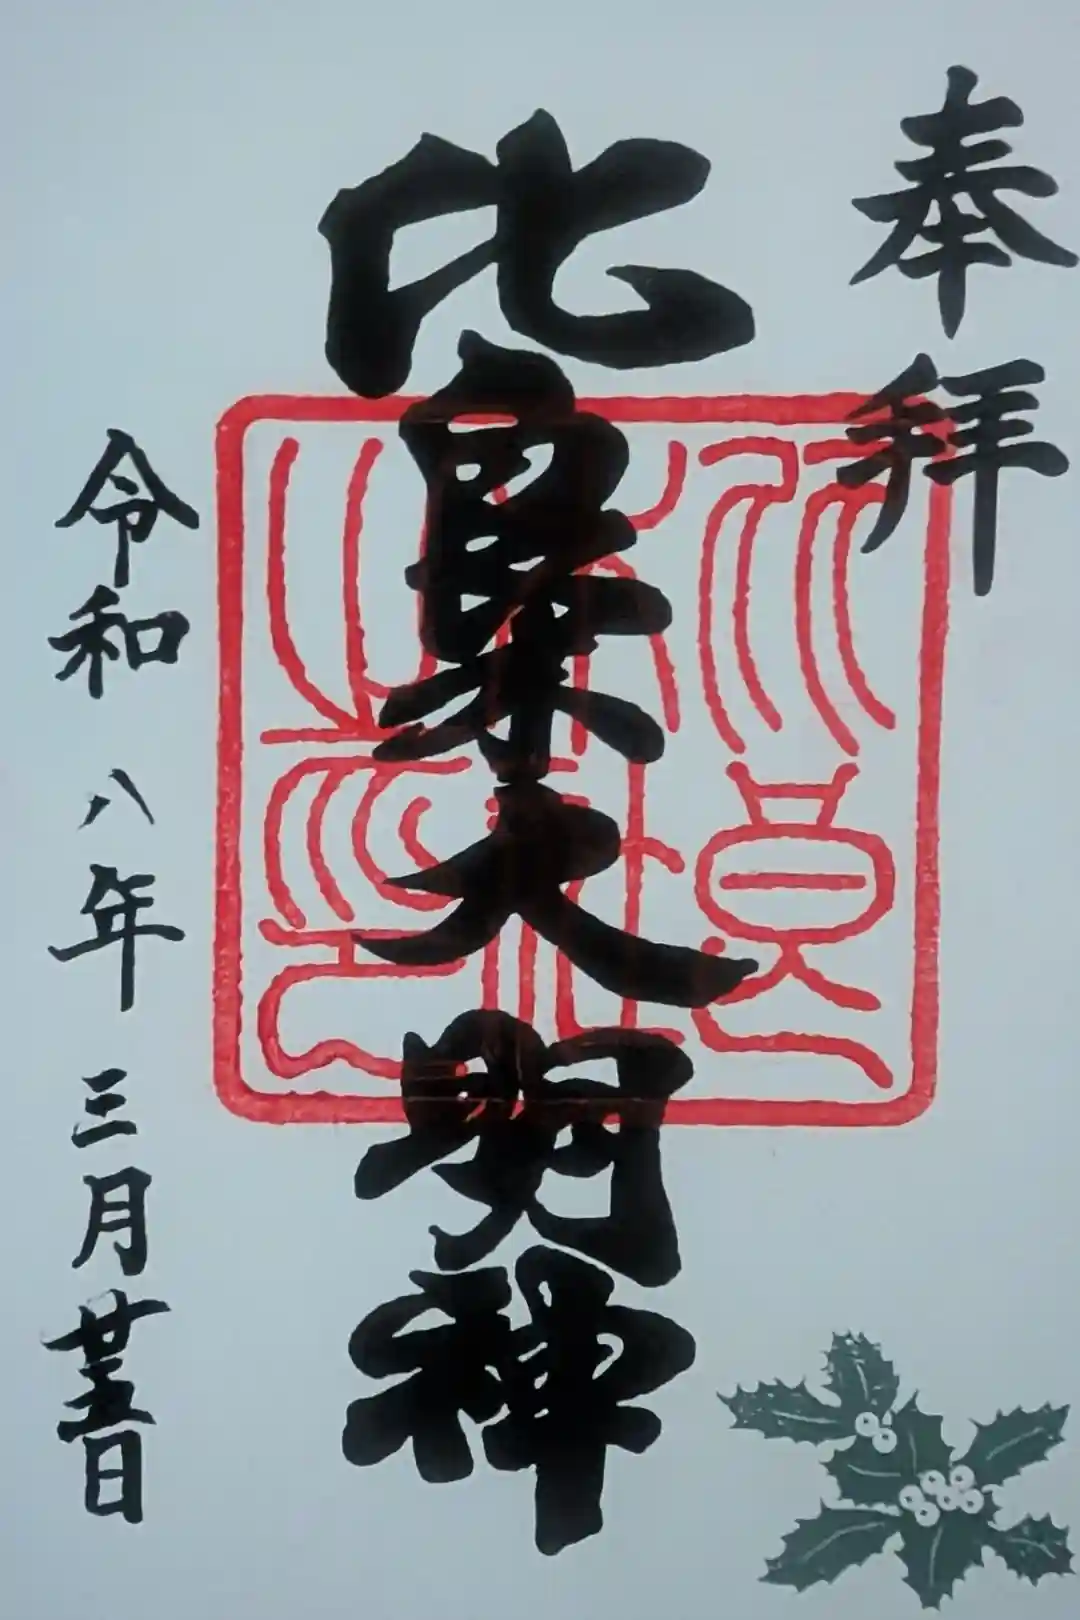 奉拝
比 大明神
令和 八年 三月 廿五日